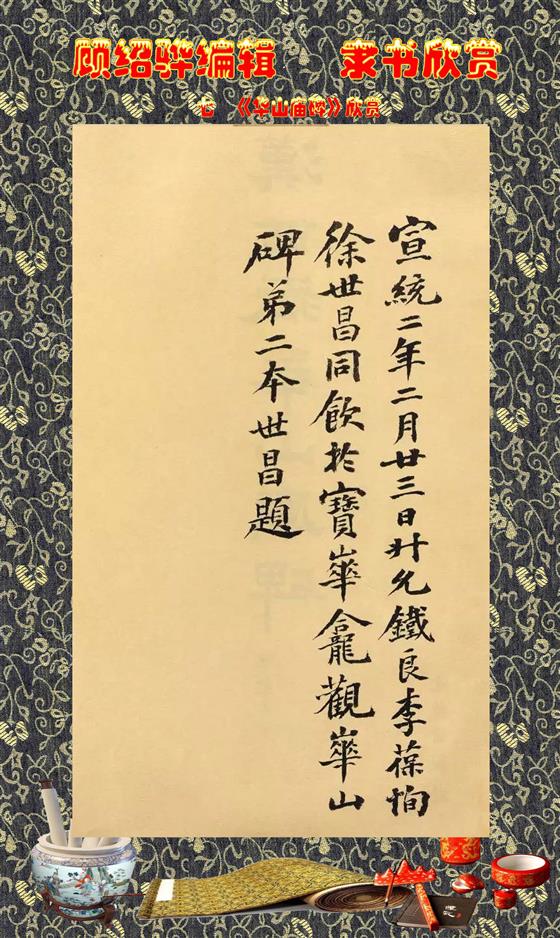 顾绍骅编辑 隶书欣赏
心 《华山庙碑》欣赏
宣統二年二月廿三日升允鐵良李葆恂
徐世昌同飲於寶華龕觀華山
碑弟二本世昌題